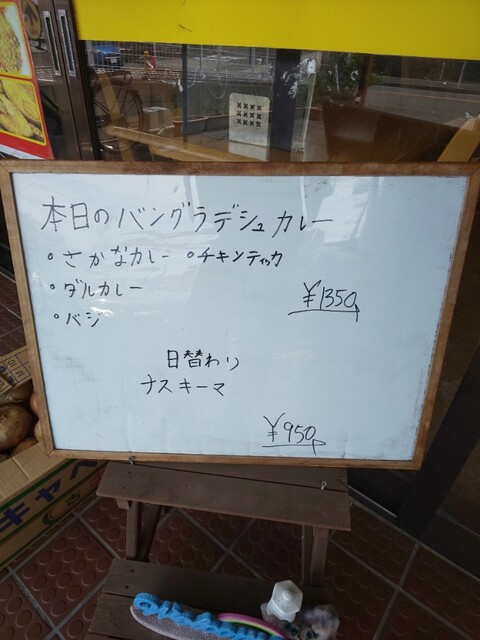 本日のバングラデシュカレー
・さかなカレー ・チキンティッカ
・ダルカレー
・バジ
¥1350
日替わり
ナスキーマ
¥950
キャベ